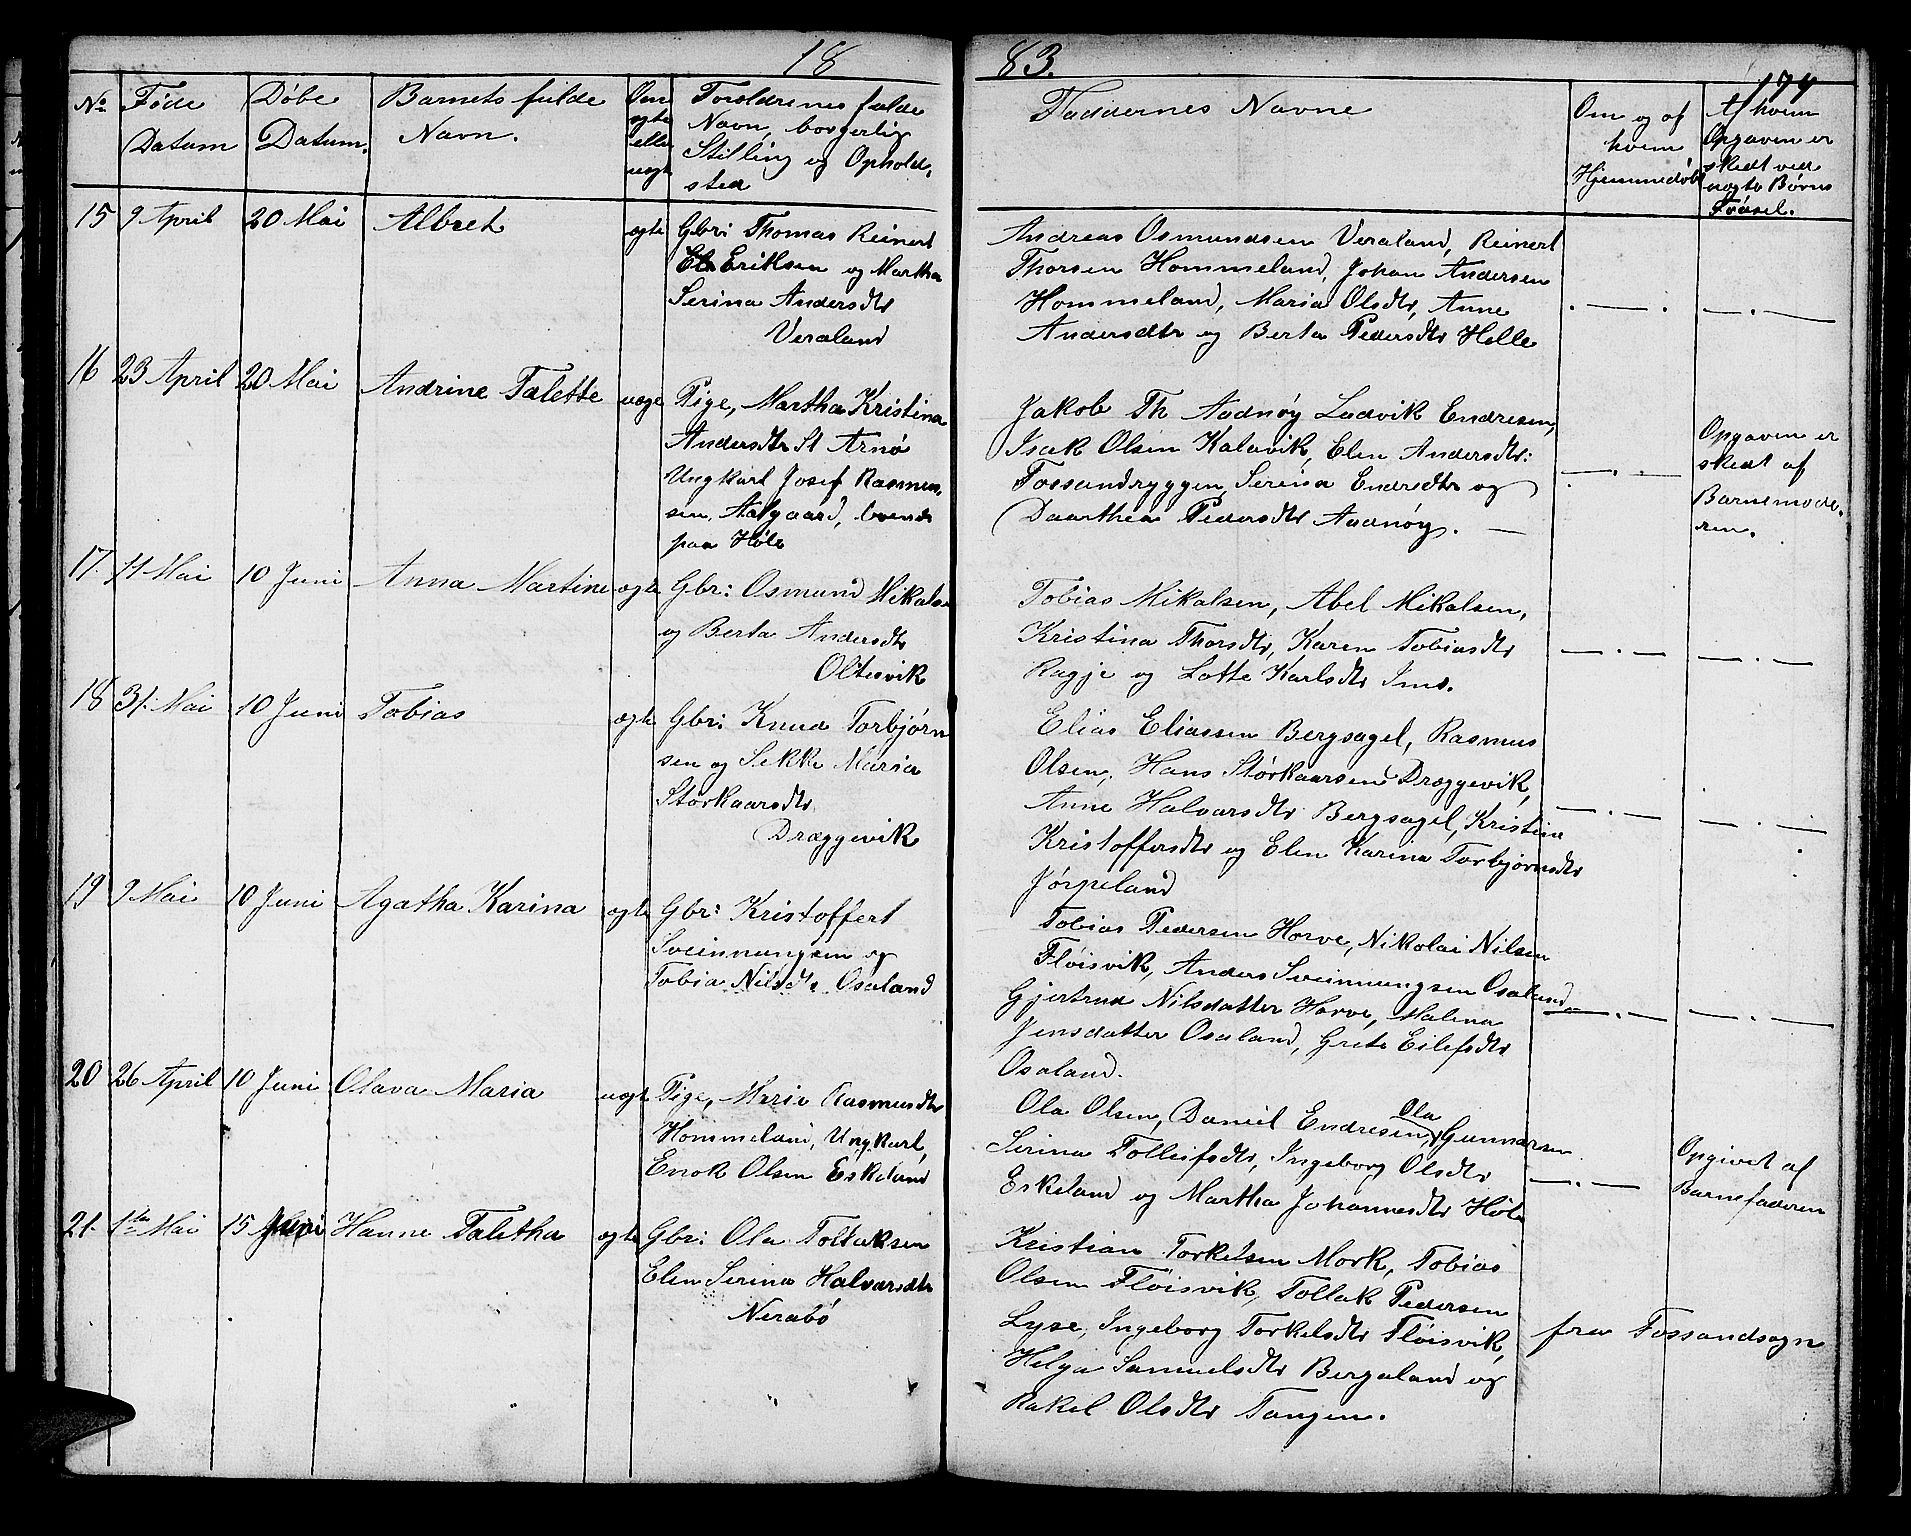 18
83.
179
No
Føde
Datum
Døbe
Datum.
Barnets fulde
Navn.
Om
ægte
eller
uægte
Forældrenes fulde
Navn, borgerlig
Stilling og Opholds,
sted
Faddernes Navne
Om og af
hvem
Hjemmedøbt
Af hvem
Opgaven er
skedt ved
uægte Børns
Fødsel.
15 9 April 20 Mai Albret ægte
Gbr: Thomas Reinert
Eriksen og Martha
Serina Andersdtr
Veraland
Andreas Osmundsen Veraland, Reinert
Thorsen Hommeland, Johan Andersen
Hommeland, Maria Olsdtr, Anne
Andersdtr og Berta Pedersdtr Helle
16 23 April 20 Mai Andrine Talette uægte
Pige, Martha Kristina
Andersdtr St Arnø
Ungkarl Josef Rasmus,
sen, Aalgaard, boende
paa Høle
Jakob Th Aadnøy Ludvik Endresen,
Isak Olsen Kalavik, Elen Andersdtr:
Fossandryggen, Serina Endredtr og
Daarthea Pedersdtr Aadnøy.
Opgaven er
skedt af
Barnemode,
ren.
17. 11 Mai 10 Juni Anna Martine ægte
Gbr: Osmund Mikalse
og Berta Andersdtr
Oltesvik
Tobias Mikalsen, Abel Mikalsen,
Kristina Thorsdtr, Karen Tobiasdtr
Ragje og Lotte Karlsdtr Ims.
18 31. Mai 10 Juni Tobias ægte
Gbr: Knud Torbjørn
sen og Sekke Maria
Storkaarsdtr
Dræggevik
Elias Eliassen Bergsagel, Rasmus
Olsen, Hans Storkaarsen Dræggevik,
Anne Halvarsdtr Bergsagel, Kristine
Kristoffersdtr og Elen Karina Torbjørnsdtr
Jørpeland
19 9 Mai 10 Juni Agatha Karina ægte
Gbr: Kristoffert
Sveinnungsen og
Tobia Nilsdtr Osaland
Tobias Pedersen Horve, Nikolai Nilsen
Fløisvik, Anders Sveinnungsen Osaland
Gjertrud Nilsdatter Horve, Malena
Jensdatter Osaland, Grete Eilefsdtr
Osaland.
20 26 April 10 Juni Olava Maria uægte
Pige, Maria Rasmusdtr
Hommeland, Ungkarl,
Enok Olsen Eskeland
Ola Olsen, Daniel Endresen, Ola Gunnarsen
Serina Tolleifsdtr, Ingeborg Olsdtr
Eskeland og Martha Johannesdtr Høle
Opgivet af
Barnefaderen
21. 1ste Mai 15 Juni Hanne Taletha ægte
Gbr: Ola Tollaksen
Elen Serina Halvarsdtr
Nerabø
Kristian Torkelsen Mork, Tobias
Olsen Fløisvik, Tollak Pedersen
Lyse, Ingeborg Torkelsdtr Fløisvik,
Helga Samuelsdtr Bergaland og
Rakel Olsdtr Tangen.
fra Fossandsogn